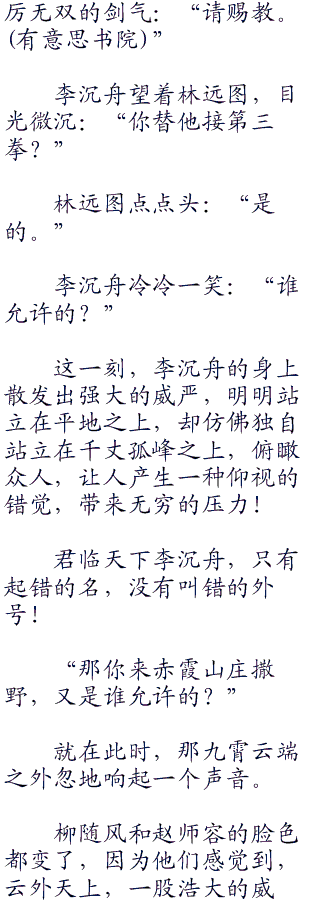 厉无双的剑气：“请赐教。
(有意思书院)”
李沉舟望着林远图，目
光微沉：“你替他接第三
拳？”
林远图点点头：“是
的。”
李沉舟冷冷一笑：“谁
允许的？”
这一刻，李沉舟的身上
散发出强大的威严，明明站
立在平地之上，却仿佛独自
站立在千丈孤峰之上，俯瞰
众人，让人产生一种仰视的
错觉，带来无穷的压力！
君临天下李沉舟，只有
起错的名，没有叫错的外
号！
“那你来赤霞山庄撒
野，又是谁允许的？”
就在此时，那九霄云端
之外忽地响起一个声音。
柳随风和赵师容的脸色
都变了，因为他们感觉到，
云外天上，一股浩大的威